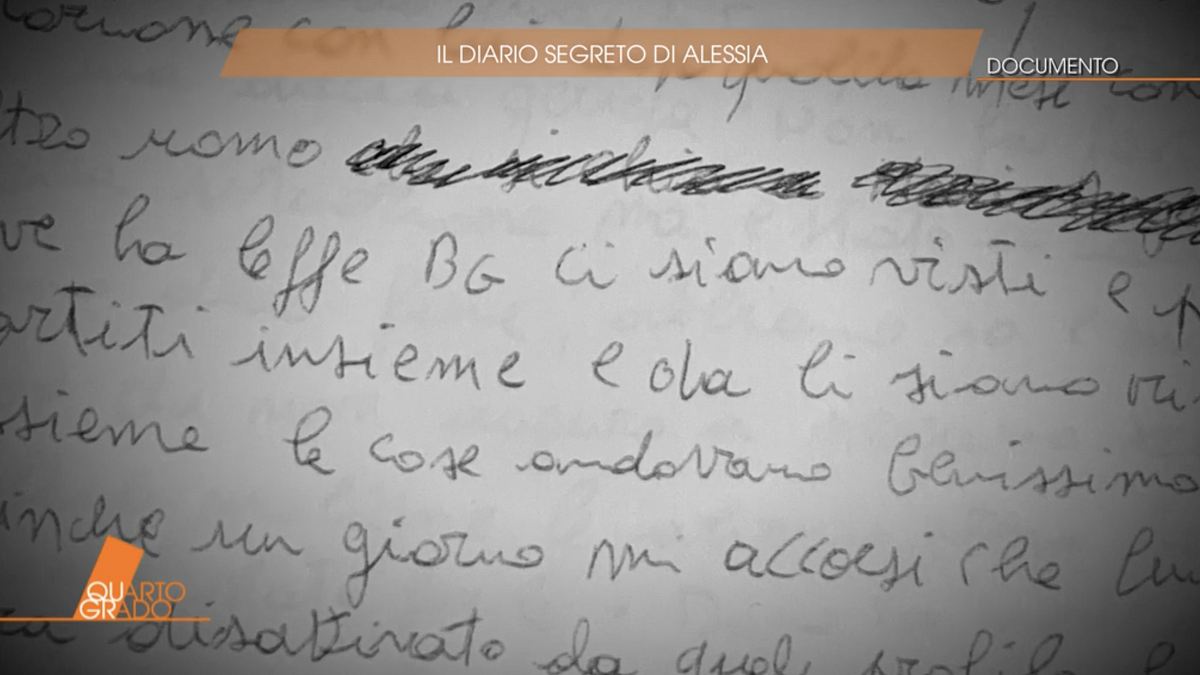 IL DIARIO SEGRETO DI ALESSIA
DOCUMENTO
con
mese con
tro uomo
ve ha leffe BG ci siamo visti e p
artiti insieme e da li siamo vis
sieme le cose andavano benissimo
inche un giorno mi accorsi che lui
QUARTO
GRADO
disattivato da quel profilo